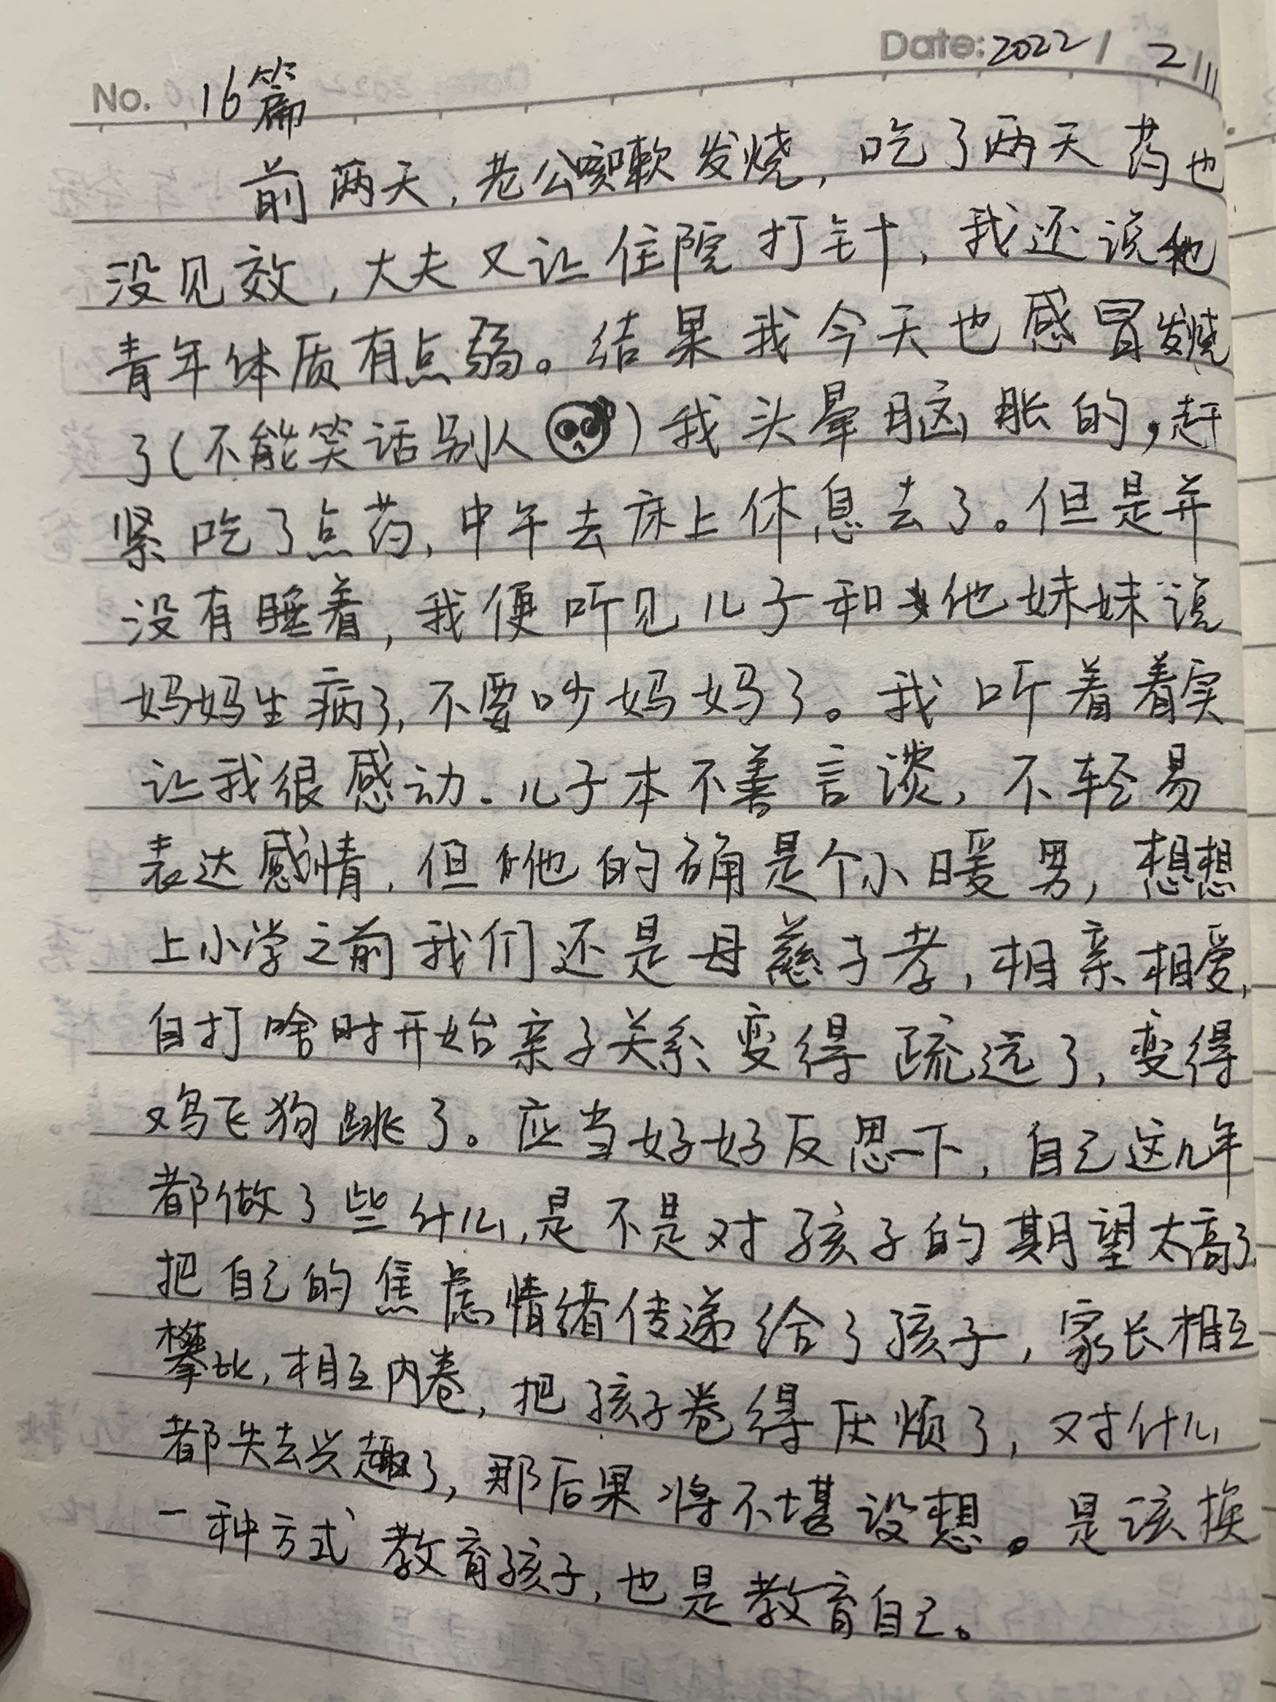 Date: 2022 / 2 / 11
No. 16篇
前两天，老公咳嗽发烧，吃了两天药也
没见效，大夫又让住院打针，我还说他
青年体质有点弱。结果我今天也感冒发烧
了（不能笑话别人）我头晕脑胀的，赶
紧吃了点药，中午去床上休息去了。但是并
没有睡着，我便听见儿子和他妹妹说
妈妈生病了，不要吵妈妈了。我听着着实
让我很感动。儿子本不善言谈，不轻易
表达感情，但他的确是个小暖男，想想
上小学之前我们还是母慈子孝，相亲相爱，
自打啥时开始亲子关系变得疏远了，变得
鸡飞狗跳了。应当好好反思一下，自己这几年
都做了些什么，是不是对孩子的期望太高了，
把自己的焦虑情绪传递给了孩子，家长相互
攀比，相互内卷，把孩子卷得厌烦了，对什么
都失去兴趣了，那后果将不堪设想。是该换
一种方式教育孩子，也是教育自己。